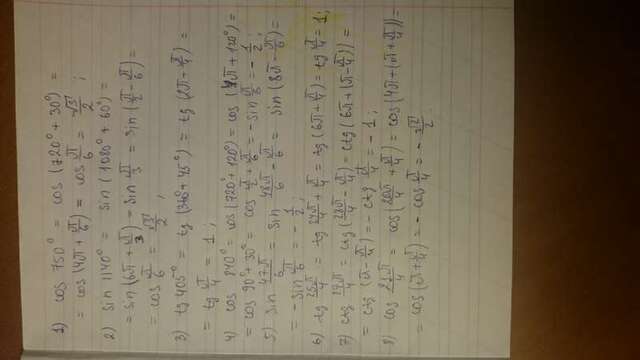 1) cos 750° = cos (720° + 30°) =
= cos (4π + π/6) = cos π/6 = √3/2 ;
2) sin 1140° = sin (1080° + 60°) =
= sin (6π + π/3) = sin π/3 = sin (π/2 - π/6) =
= cos π/6 = √3/2 ;
3) tg 405° = tg (360° + 45°) = tg (2π + π/4) =
= tg π/4 = 1 ;
4) cos 840° = cos (720° + 120°) = cos (4π + 120°) =
= cos 90° + 30° = cos π/2 + π/6 = - sin π/6 = - 1/2 ;
5) sin 47π/6 = sin 48π/6 - π/6 = sin (8π - π/6) =
= - sin π/6 = - 1/2 ;
6) tg 25π/4 = tg 24π/4 + π/4 = tg (6π + π/4) = tg π/4 = 1 ;
7) ctg 27π/4 = ctg (28π/4 - π/4) = ctg (6π + (π - π/4)) =
= ctg (π - π/4) = - ctg π/4 = - 1 ;
8) cos 21π/4 = cos (20π/4 + π/4) = cos (4π + (π + π/4)) =
= cos (π + π/4) = - cos π/4 = - √2/2